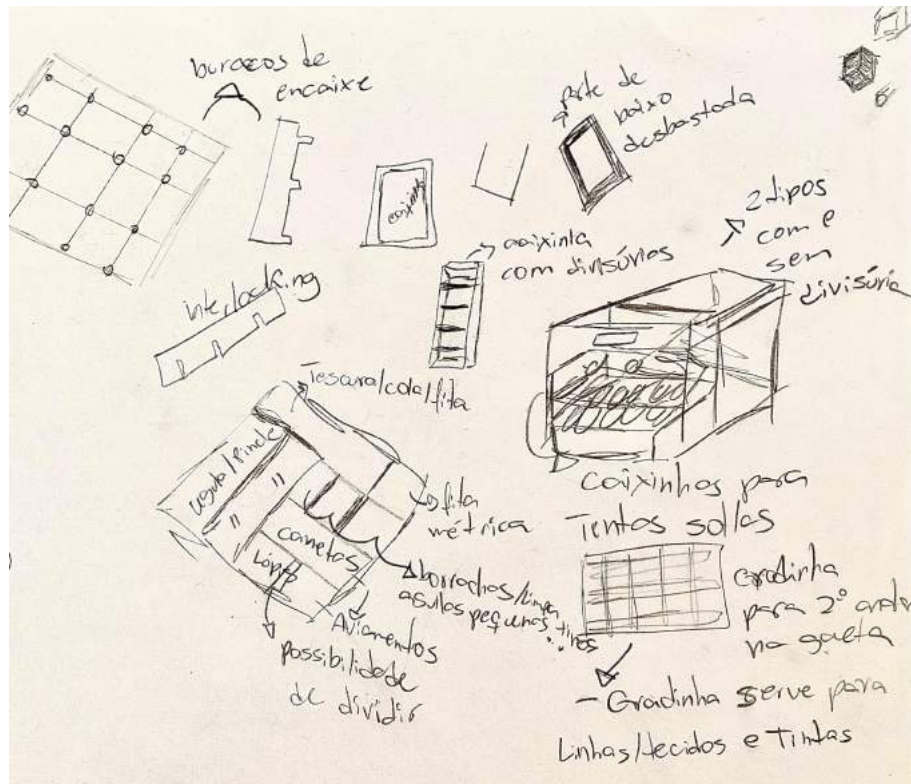 buracos de
encaixe
parte de
baixo
desbastada
caixinha
caixinha
com divisórios
2 tipos
com e
sem
divisúria
interlocking
Tesoura/cola/fita
fita
métrica
canetas
Lápis
borrachas/limpa
agulas pequenas
Aviamentos
possibilidade
de dividir
Caixinhas para
Tentos
gradinha
para 2º andar
na gaeta
- Gradinha serve para
Linhas/tecidos e Tintas